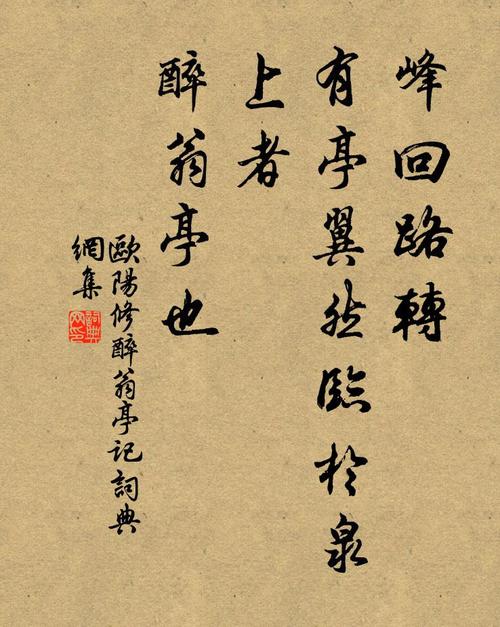 峰回路轉
有亭翼然臨於泉
上者
醉翁亭也
歐陽修醉翁亭记詞典
網集
詞典
网印